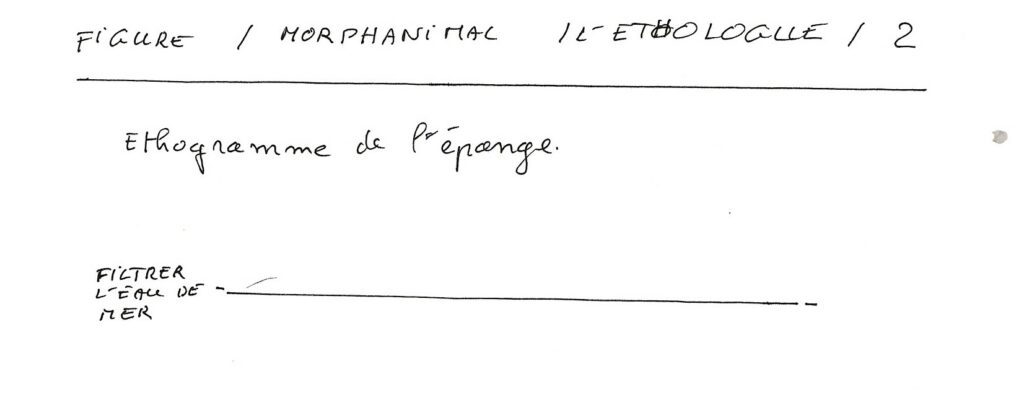 FIGURE / MORPHANIMAL / L'ETHOLOGUE / 2
Ethogramme de l'épange.
FILTRER
L'ÉAU DE
MER